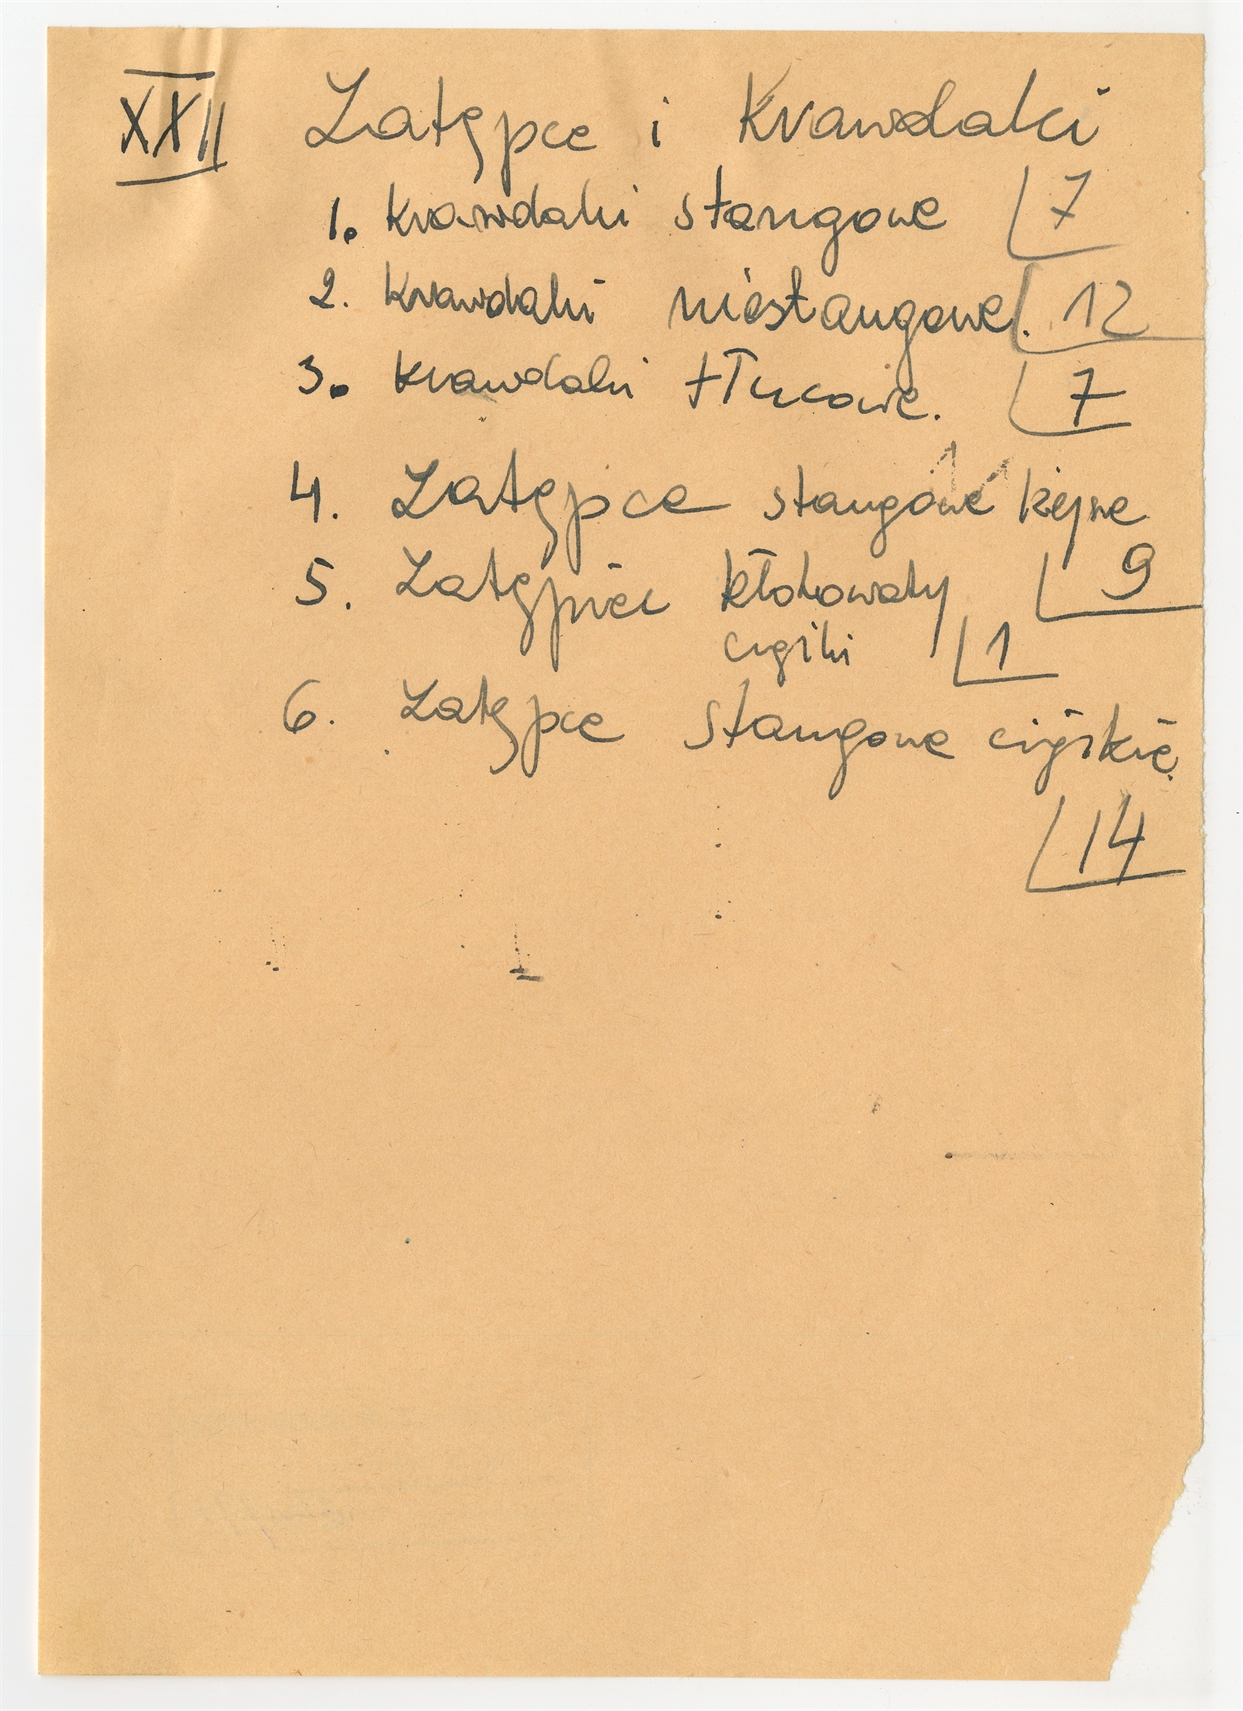 XXII Zatępce i Krawdaki
1. Krawdaki stangowe 7
2. Krawdaki niestangowe. 12
3. Krawdaki tłucowe. 7
4. Zatępce stangowe
5. Zatępiec kłotowaty 9
ciężki 1
6. Zatępce stangowe ciężkie.
14